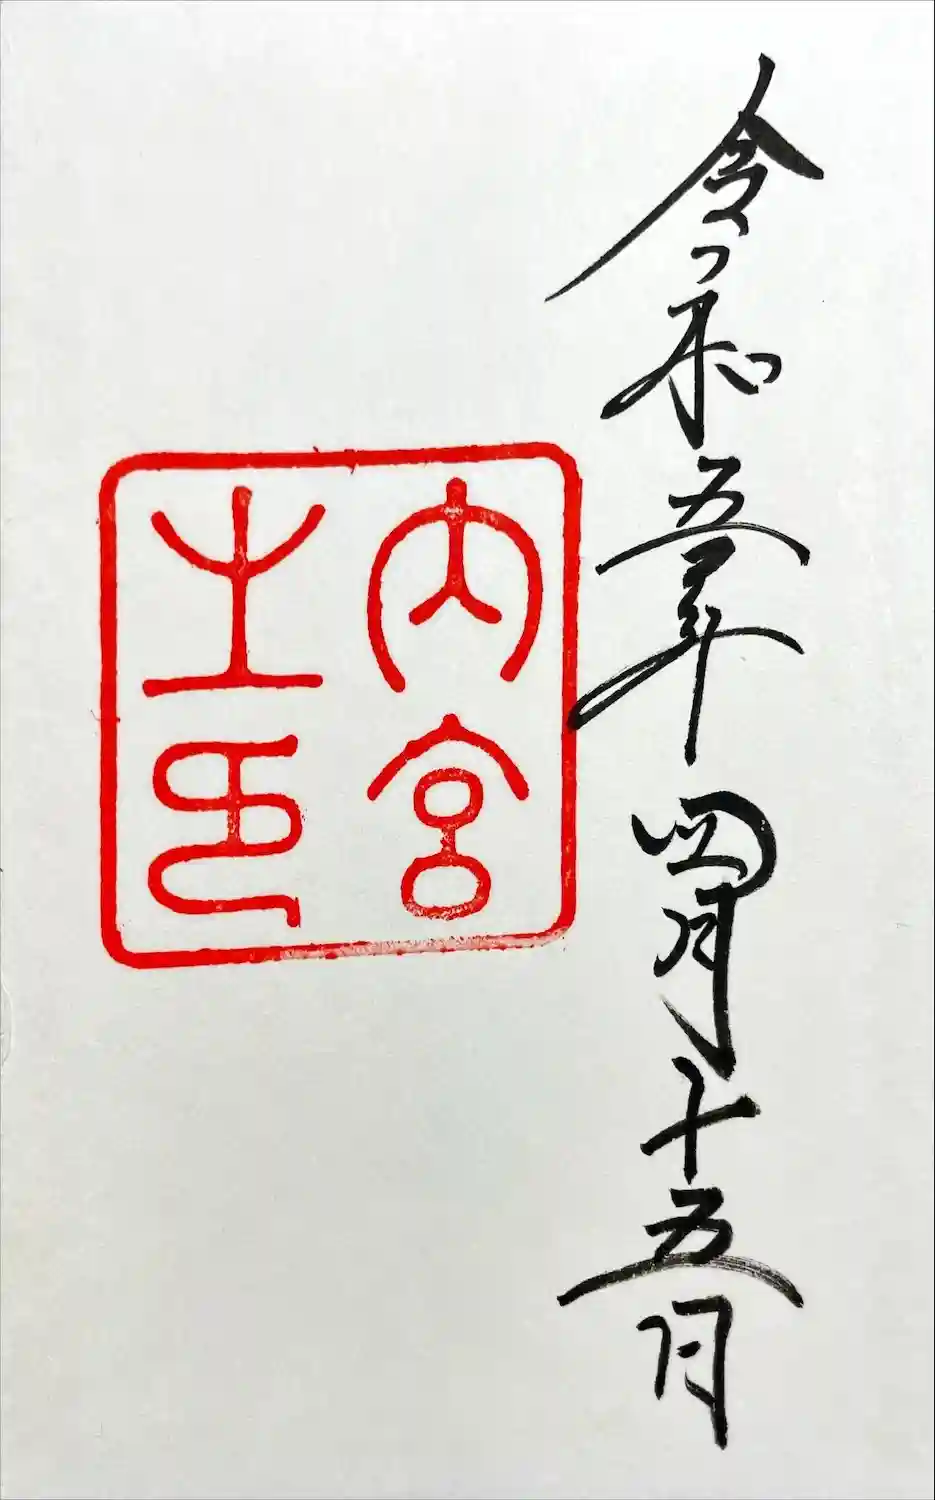 令和五年四月十五日
内宮
之印